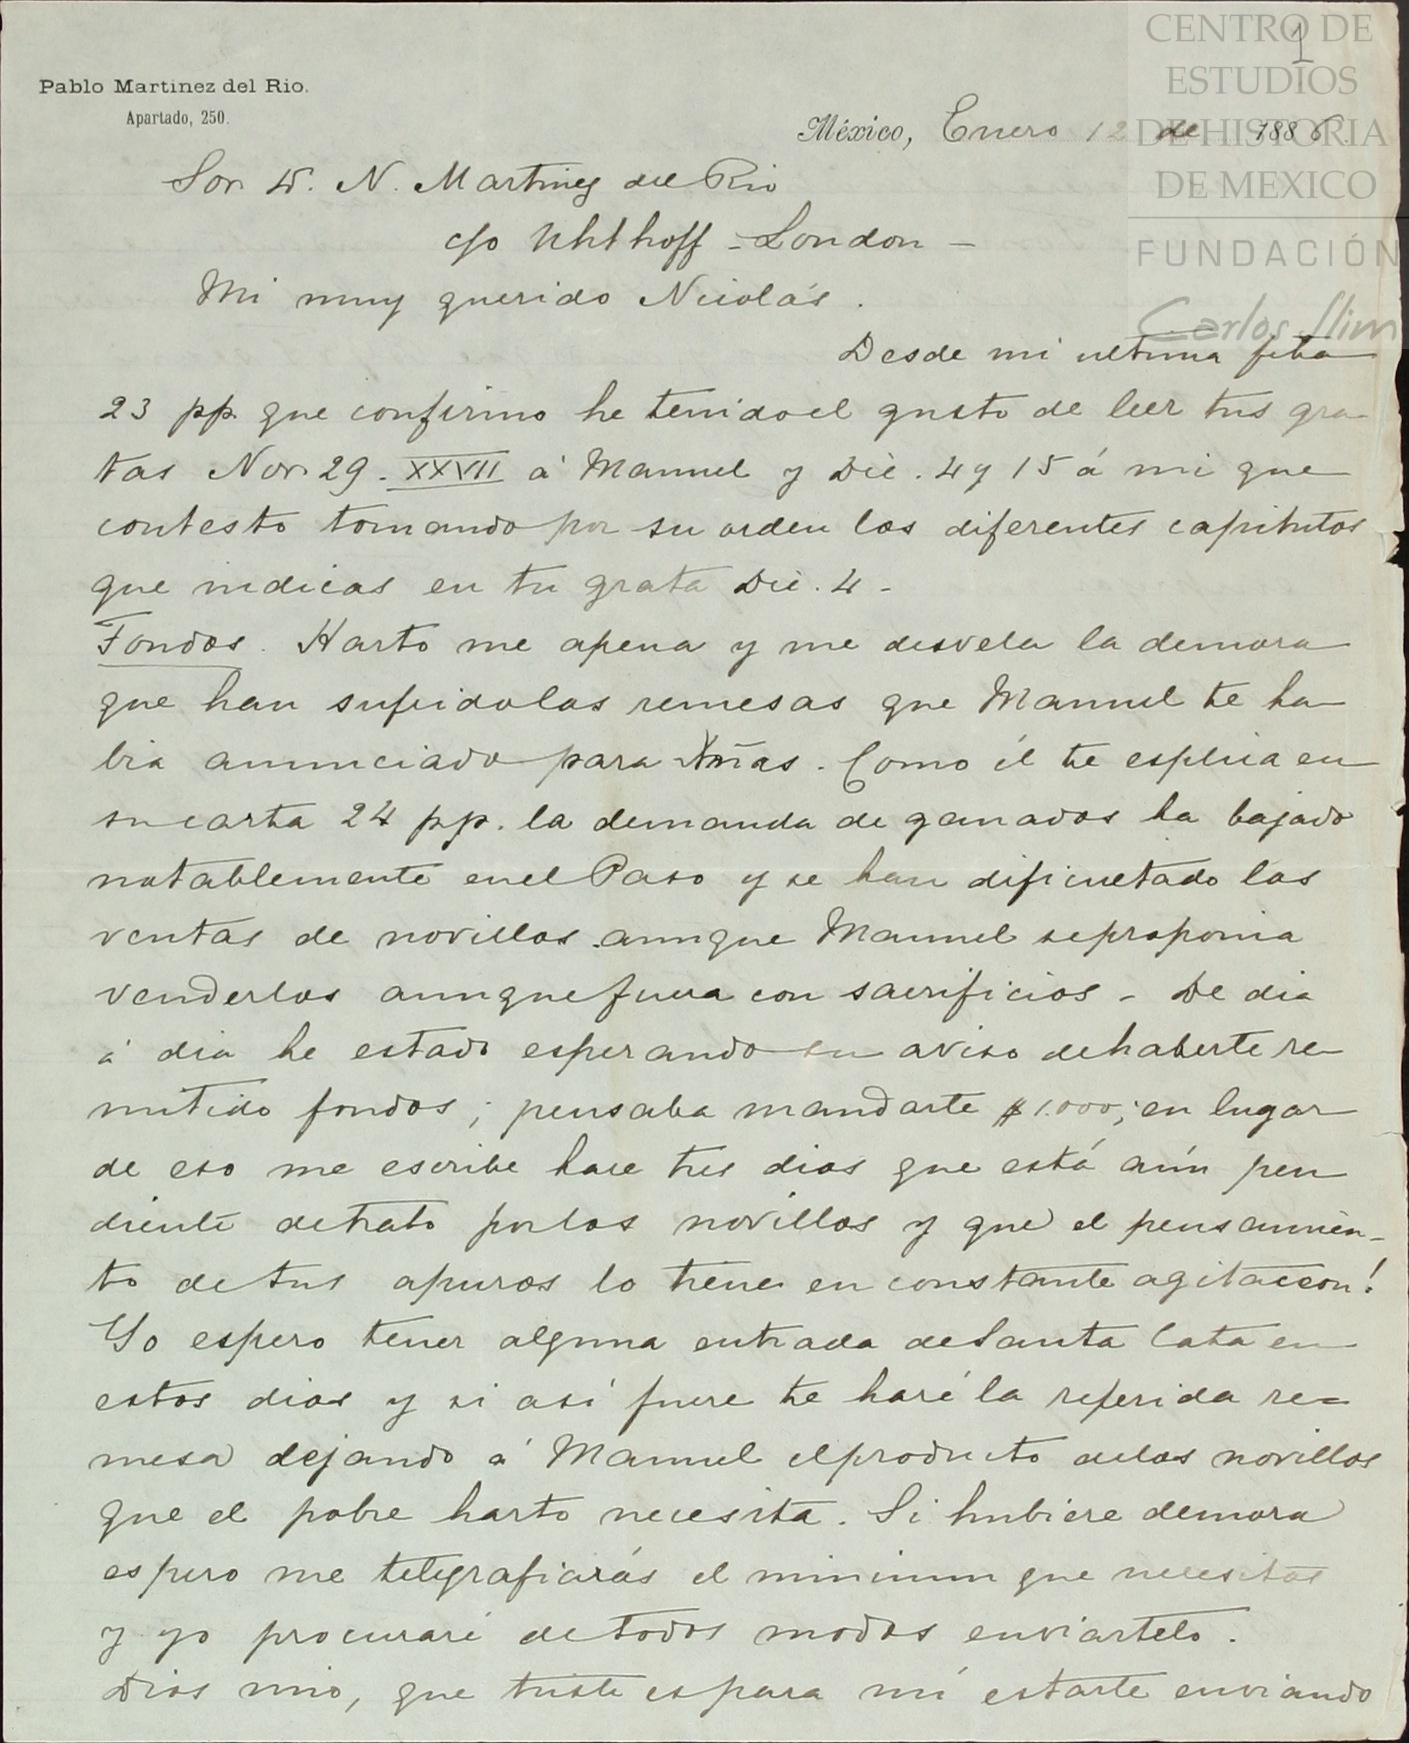 CENTRO DE
ESTUDIOS
DE HISTORIA
DE MEXICO
FUNDACIÓN
Carlos Slim
1
Pablo Martinez del Rio.
Apartado, 250.
México, Enero 12 de 1886.
Sor D. N. Martinez del Rio
c/o Uhthoff - London -
Mi muy querido Nicolás.
Desde mi ultima fcha
23 pp. que confirmo he tenido el gusto de leer tus gra-
tas Nov. 29. XXVII á Manuel y Dic. 4 y 15 á mi que
contesto tomando por su orden los diferentes capitulos
que indicas en tu grata Dic. 4 -
Fondos. Harto me apena y me desvela la demora
que han sufrido las remesas que Manuel te ha-
bia anunciado para . Como él te esplica en
su carta 24 pp. la demanda de ganados ha bajado
notablemente en el Paso y se han dificultado las
ventas de novillos aunque Manuel se proponia
venderlos aunque fuera con sacrificios - De dia
á dia he estado esperando su aviso de haberte re-
mitido fondos; pensaba mandarte $1.000; en lugar
de eso me escribe hace tres dias que está aún pen
diente de trato por los novillos y que el pensamien-
to de tus apuros lo tiene en constante agitacion!
Yo espero tener alguna entrada de Santa Cata en
estos dias y si asi fuere te haré la referida re=
mesa dejando á Manuel el producto de los novillos
que el pobre harto necesita. Si hubiere demora
espero me telegrafiarás el minimun que necesitas
y yo procuraré de todos modos enviartelo.
Dios mio, que triste es para mí estarte enviando